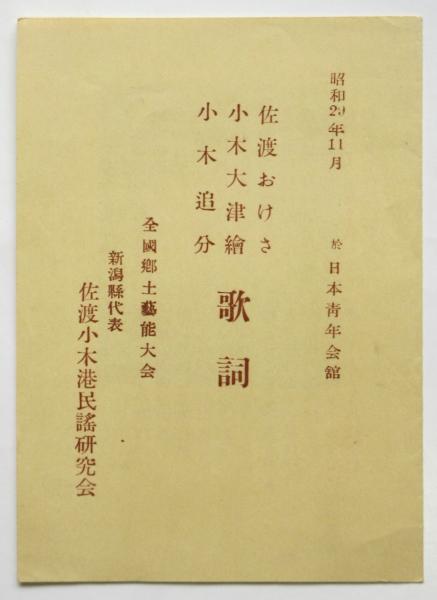 昭和29年11月
於 日本靑年会館
佐渡おけさ
小木大津繪
小木追分
歌詞
全國鄕土藝能大会
新潟縣代表
佐渡小木港民謠研究会